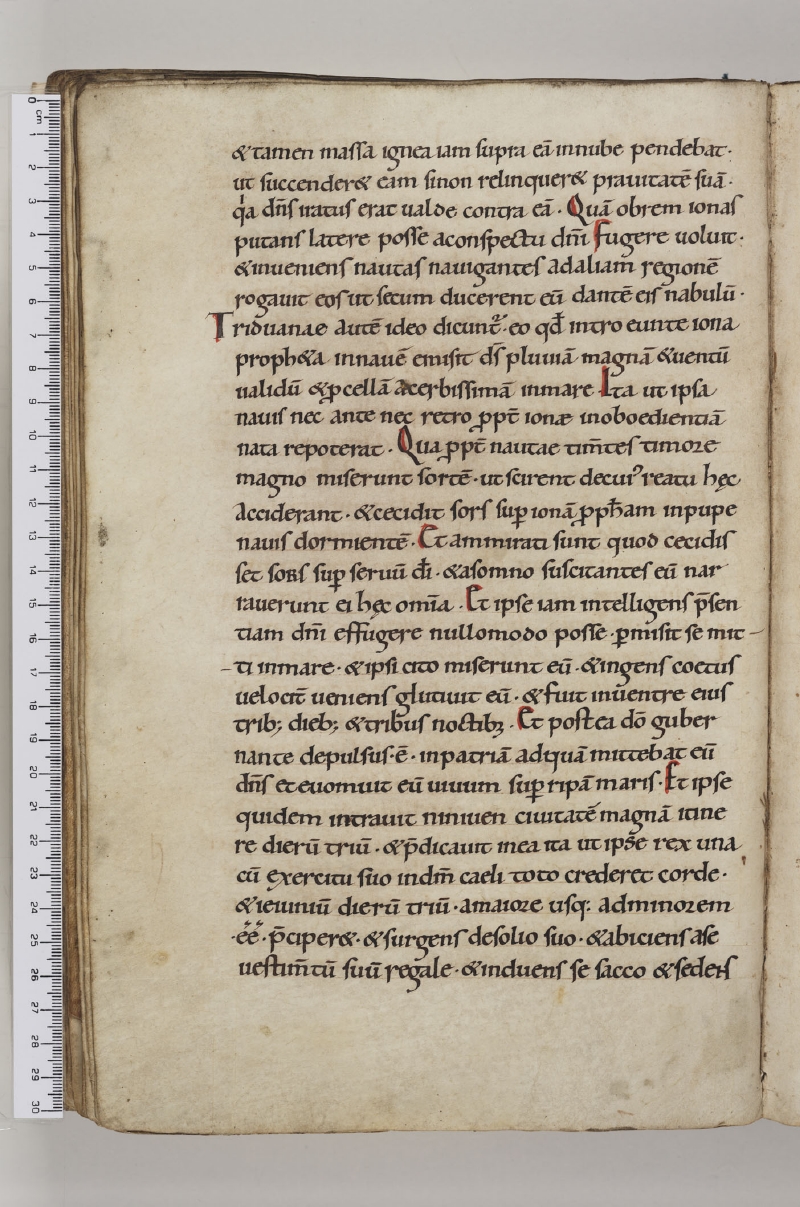 &tamen massa ignea iam supra eā innube pendebat·
ut succender& eam sinon relinquer& prauitatē suā·
qͥa dn̄s iratus erat ualde contra eā· Quā obrem ionas
putans latere posse aconspectu dn̄i Fugere uoluit·
&inueniens nautas nauigantes adaliam regionē
rogauit eos ut secum ducerent eū dantē eis nabulū·
Triduanae autē ideo dicunt᷑· eo qd̄ intro eunte iona
proph&a innauē emisit dS̄ pluuiā magnā &uentū
ualidū &ꝓcellā acerbissimā inmare Ita ut ipsa
nauis nec ante nec retro ꝓpt̄ ionæ inoboedientiā
nata repoterat· Qua ꝓpt̄ nautae tim̄tes timore
magno miserunt sortē· ut scirent decuiꝰ reatu hęc
Acciderant· &cecidit sors suꝑ ionā ꝓph̄am inpupe
nauis dormientē· Et ammirati sunt quod cecidis
set sors suꝑ seruū dī· &asomno suscitantes eū nar
rauerunt ei hęc om̄ia· Et ipse iam intelligens p̄sen
tiam dn̄i effugere nullomodo posse· ꝑmisit se mit–
–ti inmare· &ipsi cito miserunt eū· &ingens coetus
uelocit̄ ueniens glutiuit eū· &fuit inuentre eius
trib; dieb; &tribus noctibꝫ· Et postea dō guber
nante depulsus·ē· inpatriā adquā mittebat eū
dn̄s et euomuit eū uiuum suꝑ ripā maris· Et ipse
quidem intrauit niniuen ciuitatē magnā itine
re dierū triū· &p̄dicauit inea ita ut ipse rex una
cū exercitu suo indm̄ caeli toto crederet corde·
&ieiuniū dierū triū· amaiore usq: adminorem
·ēē· p̄ciper&· &surgens desolio suo· &abiciens ase
uestim̄tū suū regale· &induens se sacco &sedens